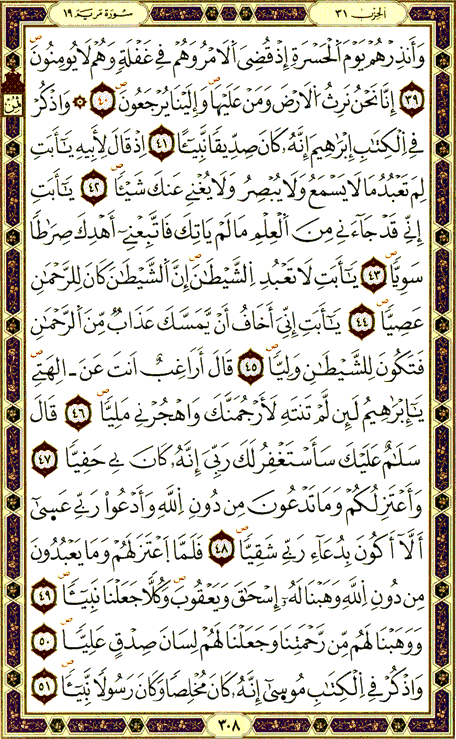 الحِزْب ٣١ سُورَة مَرْيَم ١٩
وَأَنذِرْهُمْ يَوْمَ اَلْحَسْرَةِ إِذْ قُضِيَ اَلَامْرُ وَهُمْ فِي غَفْلَةٍ وَهُمْ لَا يُومِنُونَ
٣٩ إِنَّا نَحْنُ نَرِثُ اُلَارْضَ وَمَنْ عَلَيْهَا وَإِلَيْنَا يُرْجَعُونَ ٤٠ ۞ وَاذْكُرْ
فِي اِلْكِتَٰبِ إِبْرَٰهِيمَ إِنَّهُۥ كَانَ صِدِّيقاٗ نَّبِيٓـٔاً ٤١ اِذْ قَالَ لِأَبِيهِ يَٰٓأَبَتِ
لِمَ تَعْبُدُ مَا لَا يَسْمَعُ وَلَا يُبْصِرُ وَلَا يُغْنِي عَنكَ شَيْـٔاٗ ٤٢ يَٰٓأَبَتِ
إِنِّي قَدْ جَآءَنِي مِنَ اَلْعِلْمِ مَا لَمْ يَاتِكَ فَاتَّبِعْنِيٓ أَهْدِكَ صِرَٰطاٗ
سَوِيّاٗ ٤٣ يَٰٓأَبَتِ لَا تَعْبُدِ اِلشَّيْطَٰنَ إِنَّ اَلشَّيْطَٰنَ كَانَ لِلرَّحْمَٰنِ
عَصِيّاٗ ٤٤ يَٰٓأَبَتِ إِنِّيَ أَخَافُ أَنْ يَّمَسَّكَ عَذَابٞ مِّنَ اَلرَّحْمَٰنِ
فَتَكُونَ لِلشَّيْطَٰنِ وَلِيّاٗ ٤٥ قَالَ أَرَاغِبٌ اَنتَ عَنَ ـ اٰلِهَتِي
يَٰٓإِبْرَٰهِيمُ لَئِن لَّمْ تَنتَهِ لَأَرْجُمَنَّكَ وَاهْجُرْنِي مَلِيّاٗ ٤٦ قَالَ
سَلَٰمٌ عَلَيْكَ سَأَسْتَغْفِرُ لَكَ رَبِّيَ إِنَّهُۥ كَانَ بِي حَفِيّاٗ ٤٧
وَأَعْتَزِلُكُمْ وَمَا تَدْعُونَ مِن دُونِ اِللَّهِ وَأَدْعُواْ رَبِّي عَسَىٰٓ
أَلَّآ أَكُونَ بِدُعَآءِ رَبِّي شَقِيّاٗ ٤٨ فَلَمَّا اَعْتَزَلَهُمْ وَمَا يَعْبُدُونَ
مِن دُونِ اِللَّهِ وَهَبْنَا لَهُۥٓ إِسْحَٰقَ وَيَعْقُوبَ وَكُلّاٗ جَعَلْنَا نَبِيٓـٔاٗ ٤٩
وَوَهَبْنَا لَهُم مِّن رَّحْمَتِنَا وَجَعَلْنَا لَهُمْ لِسَانَ صِدْقٍ عَلِيّاٗ ٥٠
وَاذْكُرْ فِي اِلْكِتَٰبِ مُوسَىٰٓ إِنَّهُۥ كَانَ مُخْلِصاٗ وَكَانَ رَسُولاٗ نَّبِيٓـٔاٗ ٥١
٣٠٨
ثمن